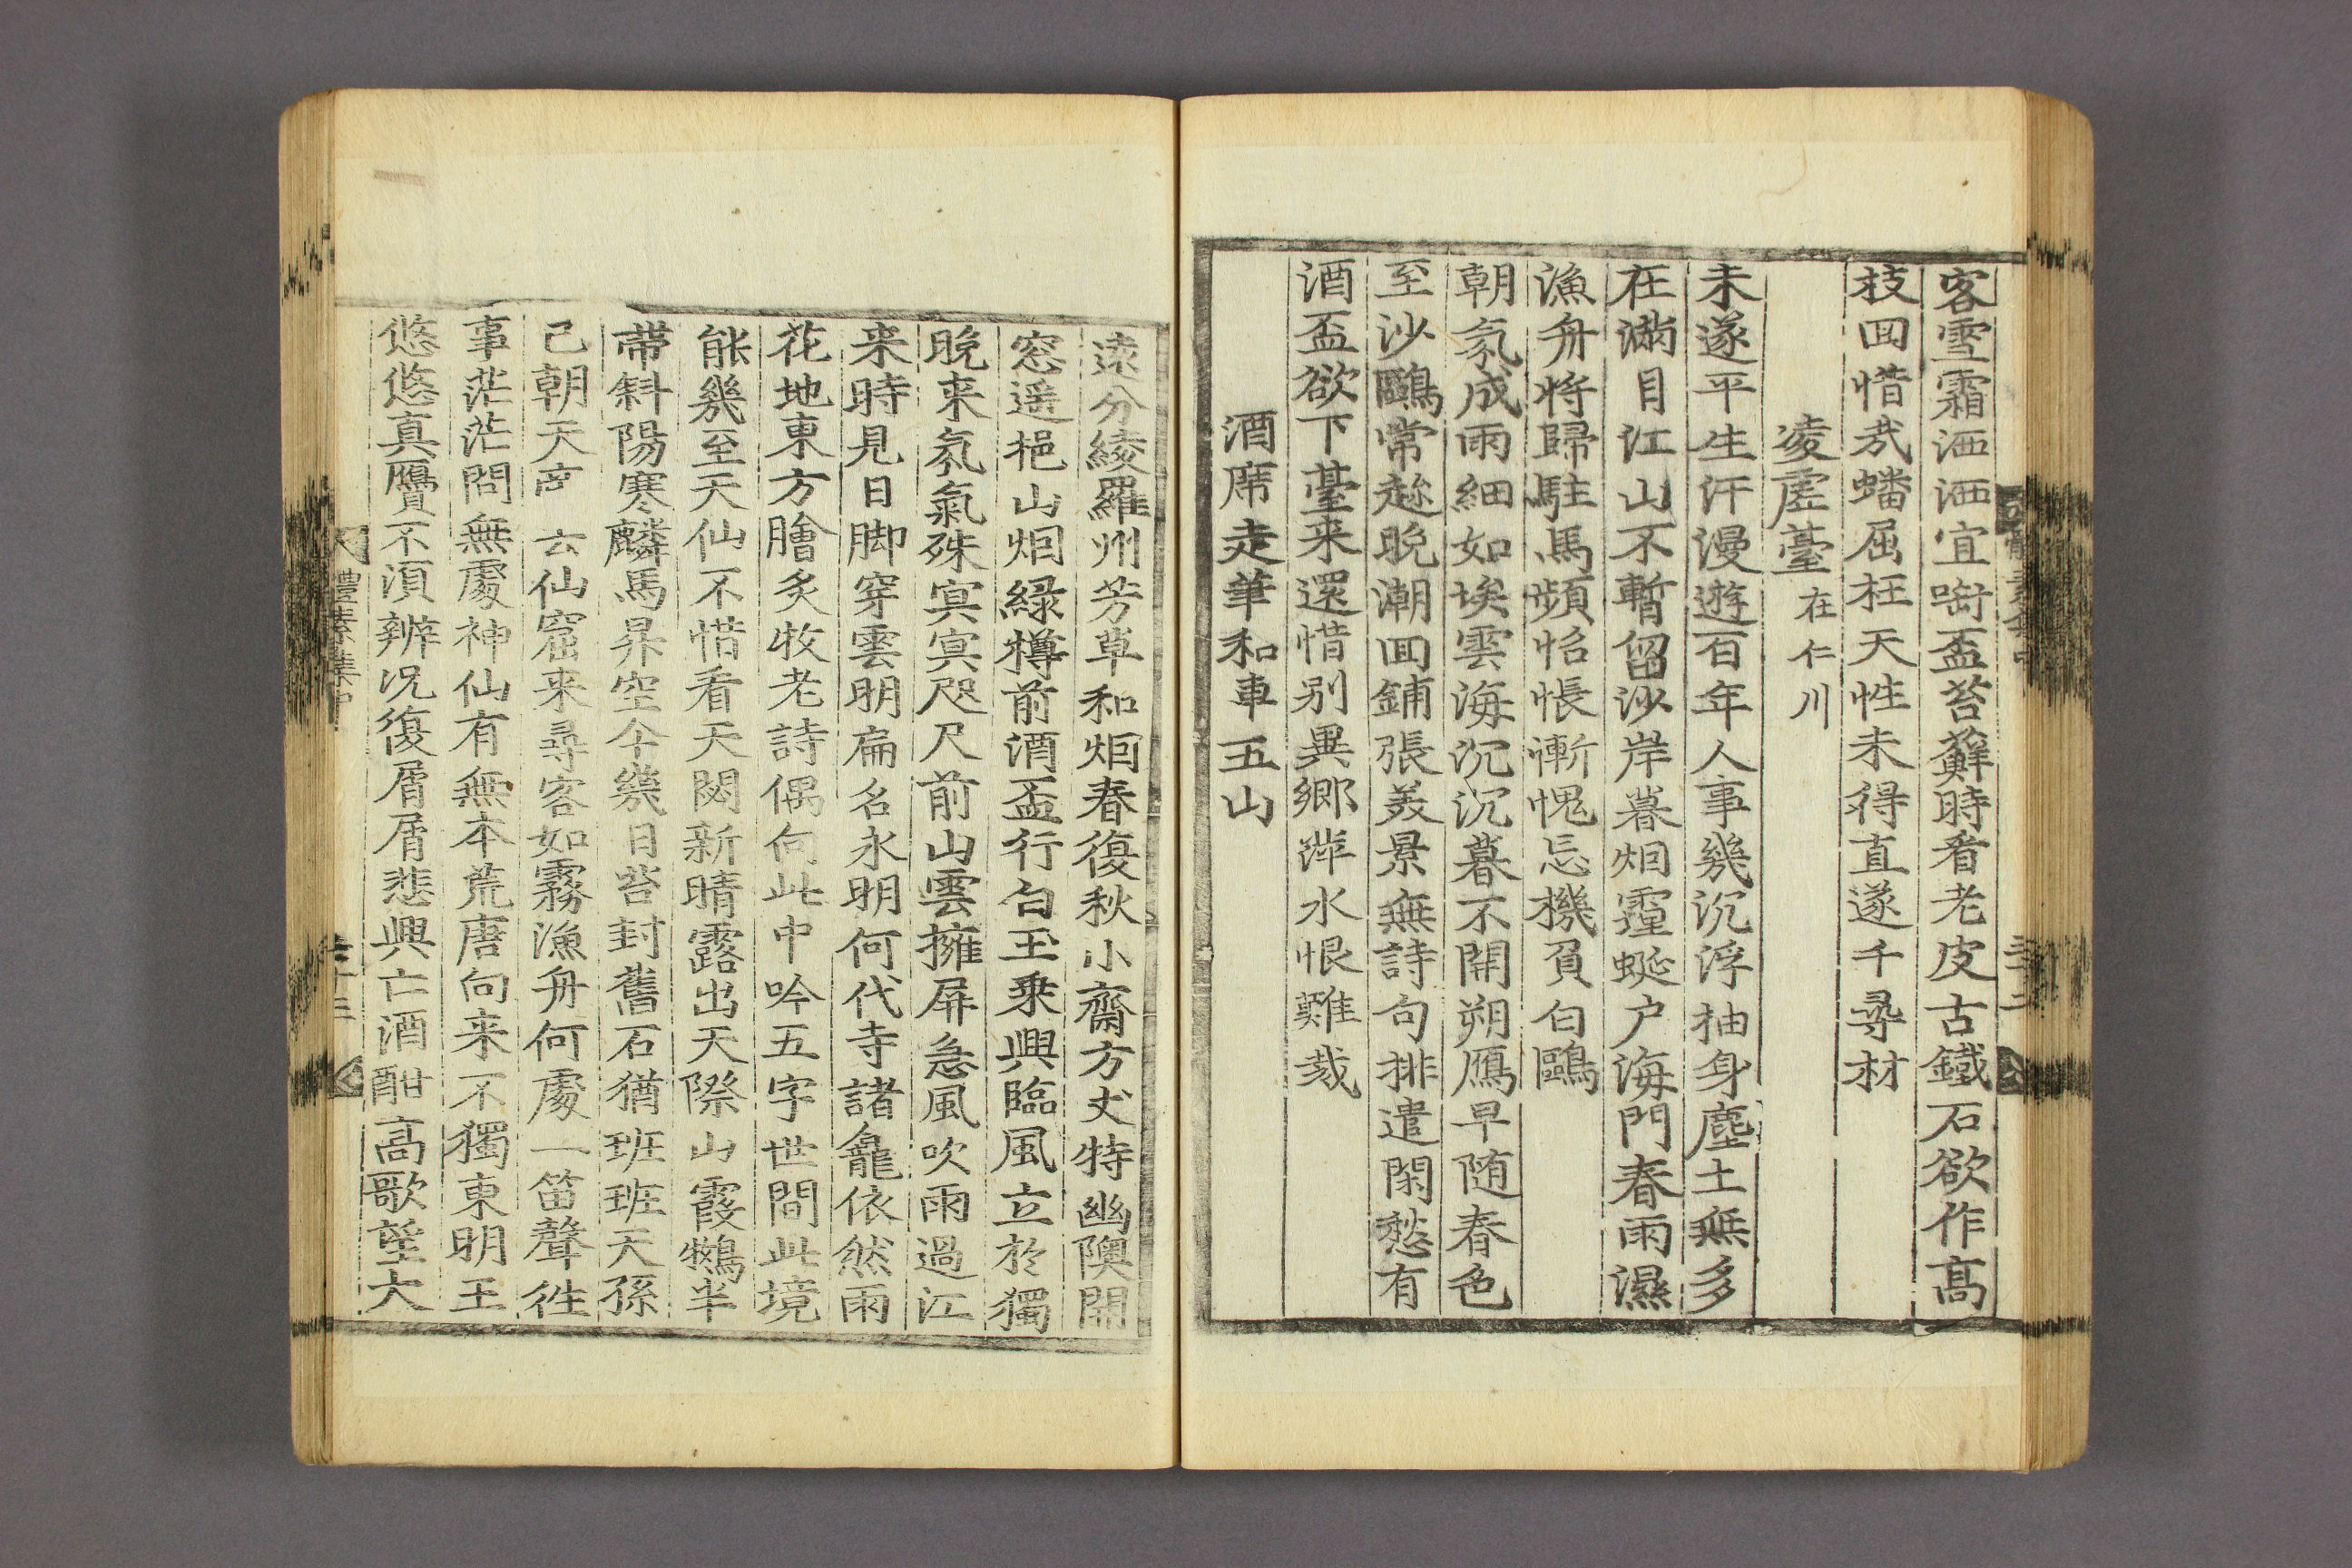 客雪霜洒洒宜㘅盃苔蘚時看老皮古鐵石欲作高
枝回惜㢤蟠屈枉天性未得直遂千尋材
凌虛臺在仁川
未遂平生汗漫遊百年人事幾沉浮抽身塵土無多
在滿目江山不暫留沙岸暮烟霾蜒户海門春雨濕
漁舟將歸駐馬頻怊悵慚愧忘機負白鷗
朝氛成雨細如埃雲海沉沉暮不開朔鴈早随春色
至沙鷗常趂晚潮回鋪張美景無詩句排遣閑愁有
酒盃欲下臺来還惜别異鄉萍水恨難裁
酒席走筆和車五山
遠分綾羅州芳草和烟春復秋小齋方丈特幽隩開
窓遥挹山烟緑樽前酒盃行白玉乗興臨風立於獨
晚来氛氣殊㝠㝠咫尺前山雲擁屏急風吹雨過江
来時見日脚穿雲明扁名永明何代寺諸龕依然雨
花地東方膾炙牧老詩偶向此中吟五字世間此境
能幾至天仙不惜看天闕新晴露出天際山霞鶩半
帶斜陽寒麟馬昇空今幾日苔封舊石猶班班天孫
已朝天啇去仙窟来尋客如霧漁舟何處一笛聲徃
事茫茫問無處神仙有無本荒唐向来不獨東明王
悠悠真贋不湏辨况復屑屑悲興亡酒酣高歌望大